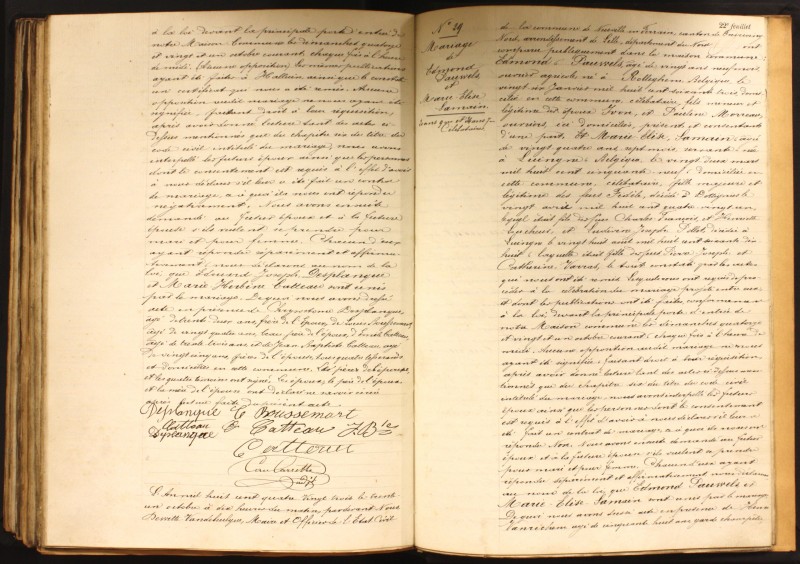 à la loi devant la principale porte d'entrée de
notre Maison Commune les dimanches quatorze
et vingt et un octobre courant chaque fois à l'heure
de midi. Aucune opposition
ayant été faite à Halluin ainsi que le constate
un certificat qui nous a été remis. Aucune
opposition audit mariage ne nous ayant été
signifiée, faisant droit à leur réquisition,
après avoir donné lecture tant des actes ci-
dessus mentionnés que du chapitre six du titre du
code civil intitulé du mariage, nous avons
interpellé les futurs époux ainsi que les personnes
dont le consentement est requis à l'effet d'avoir
à nous déclarer s'il leur a été fait un contrat
de mariage, à quoi ils nous ont répondu
négativement. Nous avons ensuite
demandé au futur époux et à la future
épouse s'ils veulent se prendre pour
mari et pour femme. Chacun d'eux
ayant répondu séparément et affirma-
tivement, nous déclarons au nom de la
loi, que Edouard Joseph Desplanque
et Marie Catteau sont unis
par le mariage. De quoi nous avons dressé
acte en présence de Chrysostome Desplanque,
âgé de trente deux ans, frère de l'époux, de Louis
âgé de vingt quatre ans, beau frère de l'époux,
âgé de trente ans et de Jean Baptiste Catteau, âgé
de vingt cinq ans, frère de l'épouse, tous quatre
et domiciliés en cette commune. Le père de l'épouse
et les quatre témoins ont signé. Les époux, le père de l'époux
et la mère de l'épouse ont déclaré ne savoir
après que fut faite du présent acte.
Desplanque C Boussemart
Catteau Catteau J Bte
Desplanque
Catteau
L'An mil huit cent quatre vingt trois le trente
un octobre à dix heures du matin, par devant Nous
Vandebeulque, Maire et Officier de l'Etat Civil
22e feuillet
No 29
Mariage
de
Edmond
Pauwels
et
Marie Elise
Samain
de la commune de Neuville en Ferrain, canton de Tourcoing
Nord, arrondissement de Lille, département du Nord ont
comparu publiquement dans la maison commune:
Edmond Pauwels, âgé de vingt ans neuf mois,
ouvrier agricole né à Rolleghem, Belgique le
vingt six Janvier mil huit cent soixante trois domi-
cilié en cette commune, célibataire, fils mineur et
légitime des époux Ivon, et Pauline Moreau,
ouvriers, ici domiciliés, présents et consentants
d'une part; Et Marie Elise Samain, âgée
de vingt quatre ans sept mois, servante née
à Luingne, Belgique le vingt deux mars
mil huit cent cinquante neuf, domiciliée en
cette commune, célibataire, fille majeure et
légitime des feus décédé à
vingt avril mil huit cent quatre vingt un
lequel était fils des feus Charles François et
et Joseph décédée à
Luingne le vingt huit août mil huit cent soixante dix
huit, laquelle était fille des feus Pierre Joseph et
Catherine
qui nous ont été remis. Lesquels nous ont requis de pro-
céder à la célébration du mariage projeté entre eux
et dont les publications ont été faites conformément
à la loi devant la principale porte d'entrée de
notre Maison commune les dimanches quatorze
et vingt et un octobre courant, chaque fois à l'heure de
midi. Aucune opposition audit mariage ne nous
ayant été signifiée, faisant droit à leur réquisition,
après avoir donné lecture tant des actes ci-dessus men-
tionnés que du chapitre six du titre du code civil
intitulé du mariage, nous avons interpellé les futurs
époux ainsi que les personnes dont le consentement
est requis à l'effet d'avoir à nous déclarer s'il leur a
été fait un contrat de mariage, à quoi ils nous ont
répondu Non. Nous avons ensuite demandé au futur
époux et à la future épouse s'ils veulent se prendre
pour mari et pour femme. Chacun d'eux ayant
répondu séparément et affirmativement nous déclarons
au nom de la loi, que Edmond Pauwels et
Marie Elise Samain sont unis par le mariage.
De quoi nous avons dressé acte en présence de
âgé de cinquante huit ans garde champêtre,